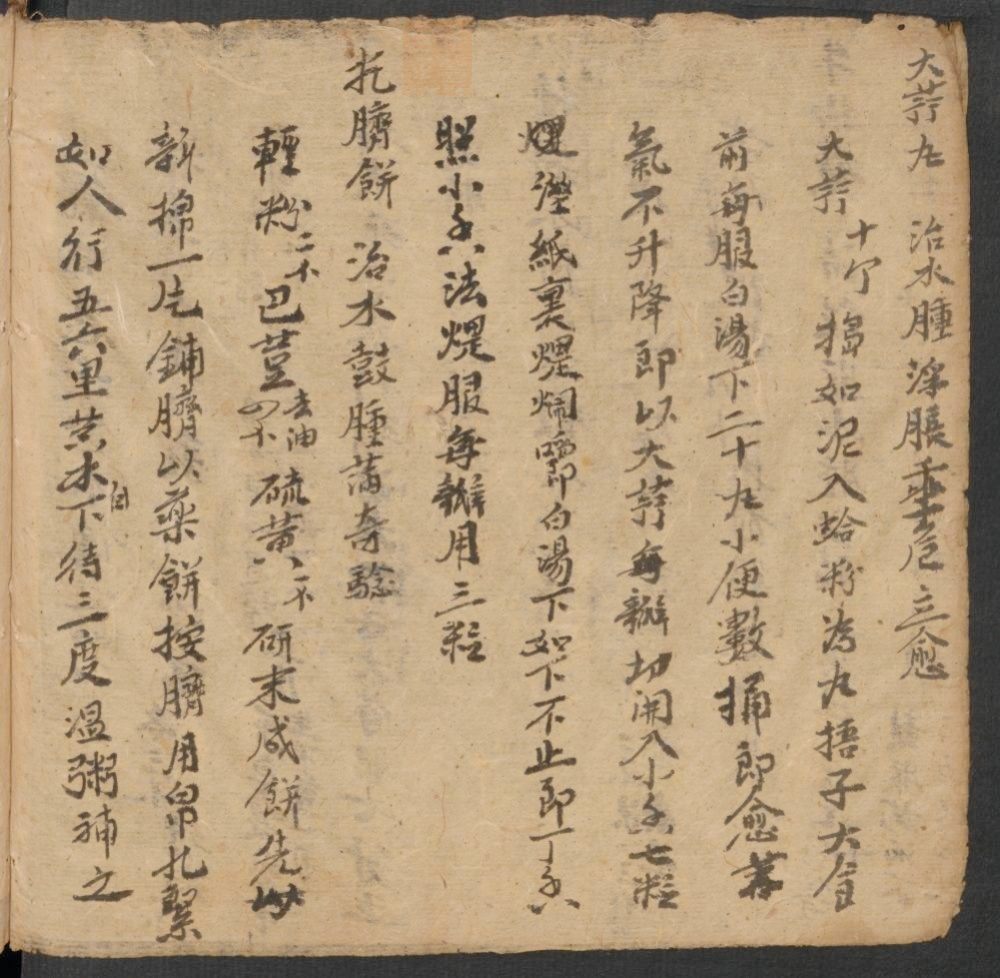 大蒜丸 治水腫浮脹垂危立愈
大蒜十个搗如泥入蛤粉為丸捂子大食
前每服白湯下二十九小便數捅即愈若
氣不升降即以大蒜每瓣切開入小茴七粒
煨溼紙裏煨爛嚼白湯下如下不止即丁香
照小茴法煨服每瓣用三粒
扎臍餅 治水鼓腫滿奇驗
輕粉二卜巴荳去油四卜硫黃一卜研末成餅先以
新棉一片鋪臍以藥餅按臍用帛扎緊
如人行五六里黃水自下待三度溫粥補之